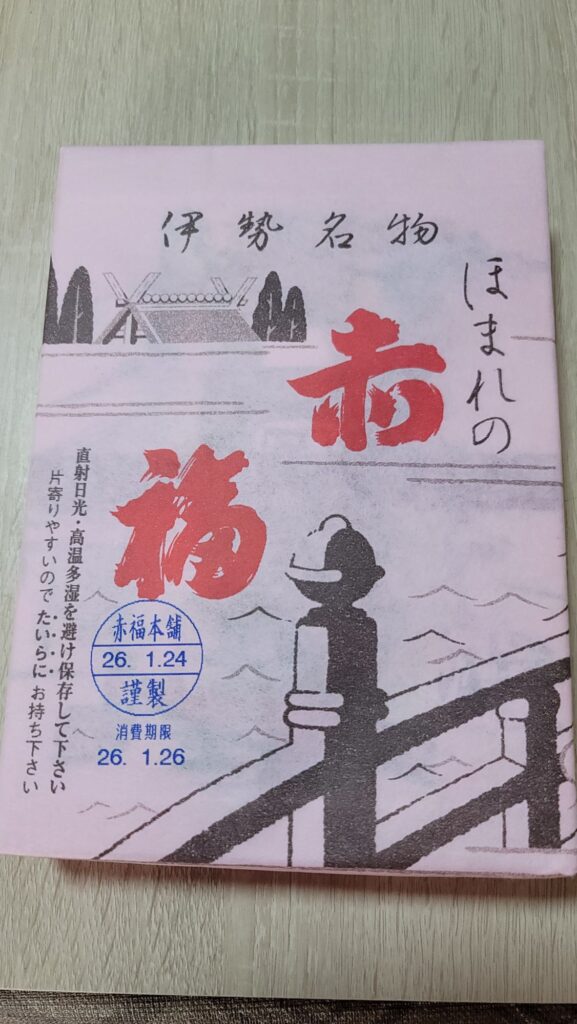 伊勢名物
ほまれの
赤福
直射日光・高温多湿を避け保存して下さい
片寄りやすいのでたいらにお持ち下さい
赤福本舗
26. 1.24
謹製
消費期限
26. 1.26